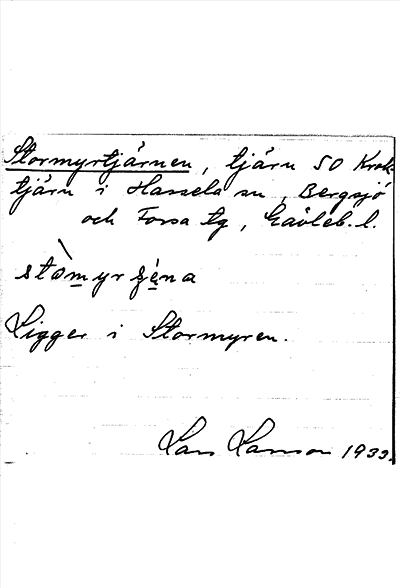 Stormyrtjärnen, tjärn SO Krok-
tjärn i Hassela sn, Bergsjö
och Forsa tg, Gävleb. l.
Ligger i Stormyren.
Lars Larsson 1933.